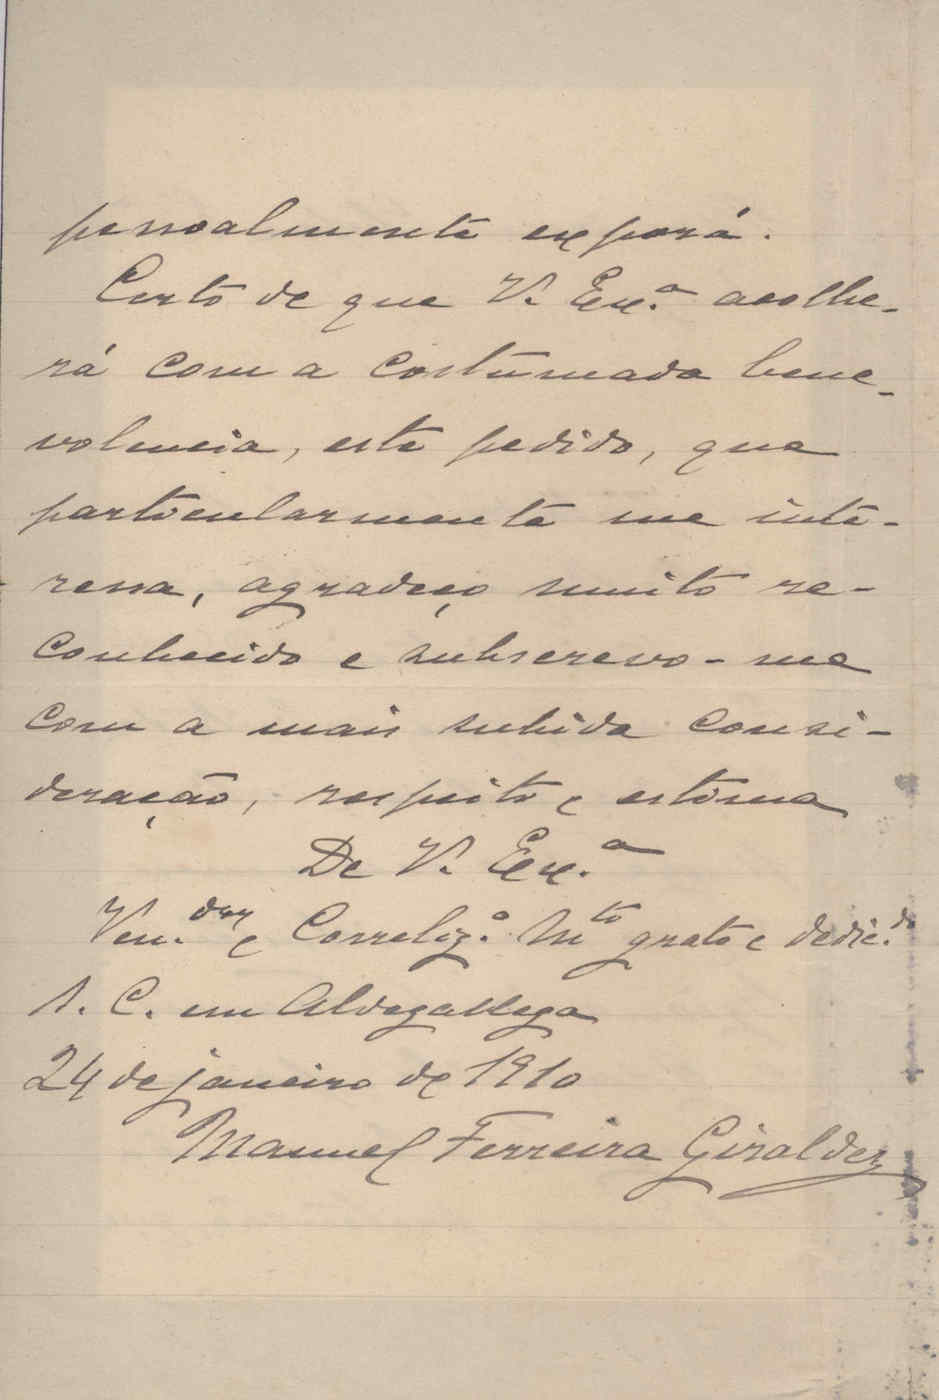 pessoalmente exporá.
Certo de que V. Exª. acolhe-
rá com a costumada bene-
volencia, este pedido, que
particularmente me inte-
ressa, agradeço muito re-
conhecido e subscrevo-me
com a mais subida consi-
deração, respeito e estima
De V. Exª.
Ven.dor e Correlig.º M.to grato e dedic.do
S. C. em Aldegallega
24 de janeiro de 1910
Manuel Ferreira Giraldez